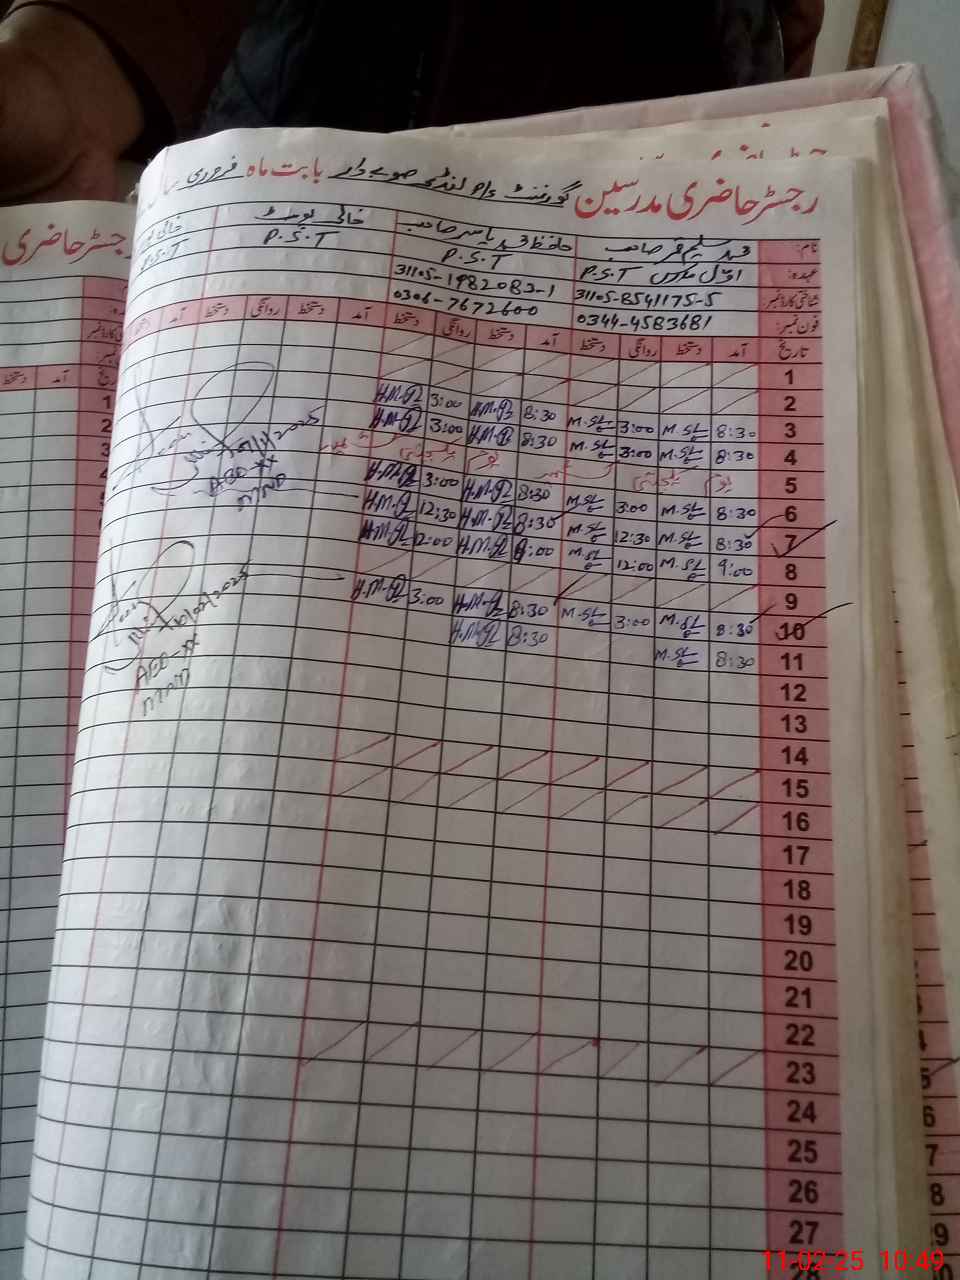 رجسٹر حاضری مدرسین گورنمنٹ p/s لنڈی صوبے دار بابت ماہ فروری
نام: محمد سلیم قمر صاحب حافظ محمد یاسر صاحب خالی پوسٹ
عہدہ: اوّل مدرس P.S.T P.S.T P.S.T P.S.T
شناختی کارڈ نمبر: 31105-8541175-5 31105-1982083-1
فون نمبر: 0344-4583681 0306-7672600
تاریخ آمد دستخط روانگی دستخط آمد دستخط روانگی دستخط آمد دستخط روانگی دستخط آمد دستخط
1
2
3 8:30 M.SL 3:00 M.SL 8:30 H.M.Y 3:00 H.M.Y
4 8:30 M.SL 3:00 M.SL 8:30 H.M.Y 3:00 H.M.Y
5 یوم یکجہتی کشمیر یوم یکجہتی کشمیر
6 8:30 M.SL 3:00 M.SL 8:30 H.M.Y 3:00 H.M.Y
7 8:30 M.SL 12:30 M.SL 8:30 H.M.Y 12:30 H.M.Y
8 9:00 M.SL 12:00 M.SL 9:00 H.M.Y 12:00 H.M.Y
9
10 8:30 M.SL 3:00 M.SL 8:30 H.M.Y 3:00 H.M.Y
11 8:30 M.SL 8:30 H.M.Y
12
13
14
15
16
17
18
19
20
21
22
23
24
25
26
27
28
AEO-XX
MND
10/02/2025
AEO-XX
MND
رجسٹر حاضری
آمد دستخط
11-02-25 10:49